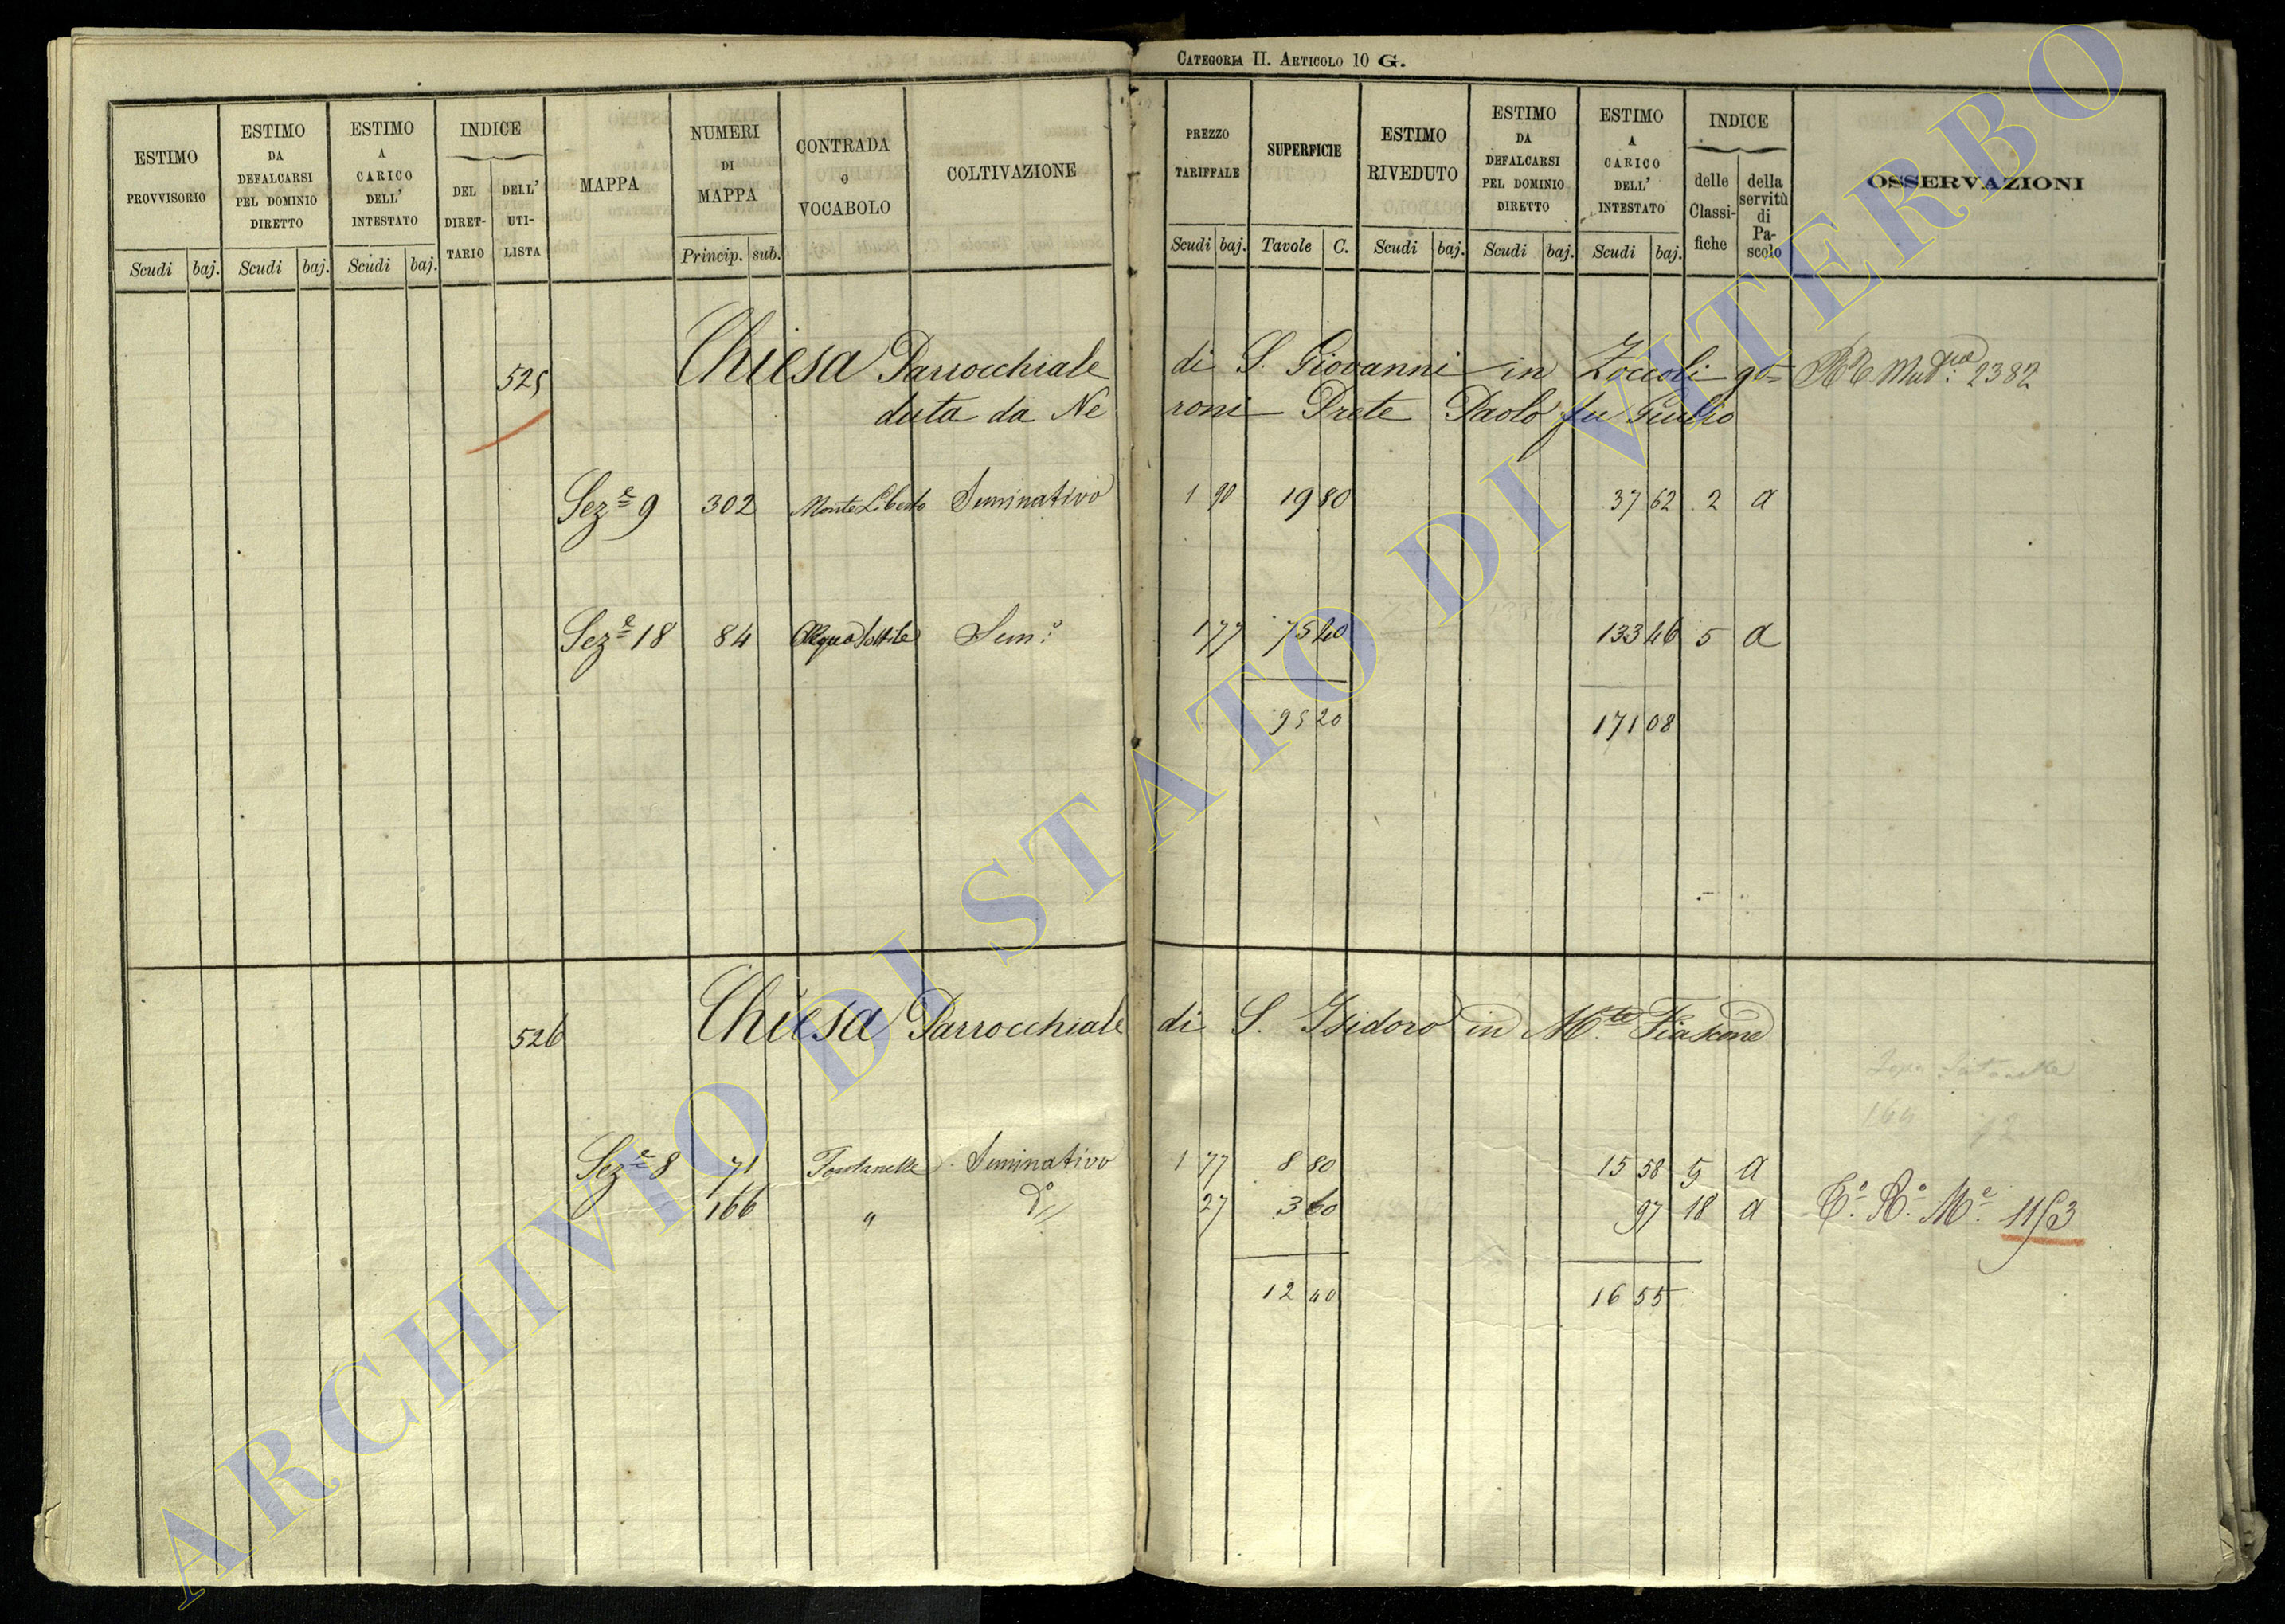 CATEGORIA II. ARTICOLO 10 G.
ESTIMO PROVVISORIO
Scudi baj.
ESTIMO DA DEFALCARSI PEL DOMINIO DIRETTO
Scudi baj.
ESTIMO A CARICO DELL' INTESTATO
Scudi baj.
INDICE
DEL DIRET-TARIO
DELL' UTI-LISTA
MAPPA
NUMERI DI MAPPA
Princip. sub.
CONTRADA O VOCABOLO
COLTIVAZIONE
PREZZO TARIFFALE
Scudi baj.
SUPERFICIE
Tavole C.
ESTIMO RIVEDUTO
Scudi baj.
ESTIMO DA DEFALCARSI PEL DOMINIO DIRETTO
Scudi baj.
ESTIMO A CARICO DELL' INTESTATO
Scudi baj.
INDICE
delle Classi-fiche
della servitù di Pa-scolo
OSSERVAZIONI
525 Chiesa Parrocchiale di S. Giovanni in Zoccoli go= 2382
duta da Ne roni Prete Paolo fu Giulio
Sez.e 9 302 Monte Liberto Seminativo 1 90 19 80 37 62 2 a
Sez.e 18 84 Acqua Sottile Sem.o 1 77 75 40 133 46 5 a
95 20 171 08
526 Chiesa Parrocchiale di S. Isidoro in M.te Fiascone
Sez.e 8 71 Fontanelle Seminativo 1 77 8 80 15 58 5 a
166 " d.o 27 3 60 97 18 a
12 40 16 55
ARCHIVIO DI STATO DI VITERBO